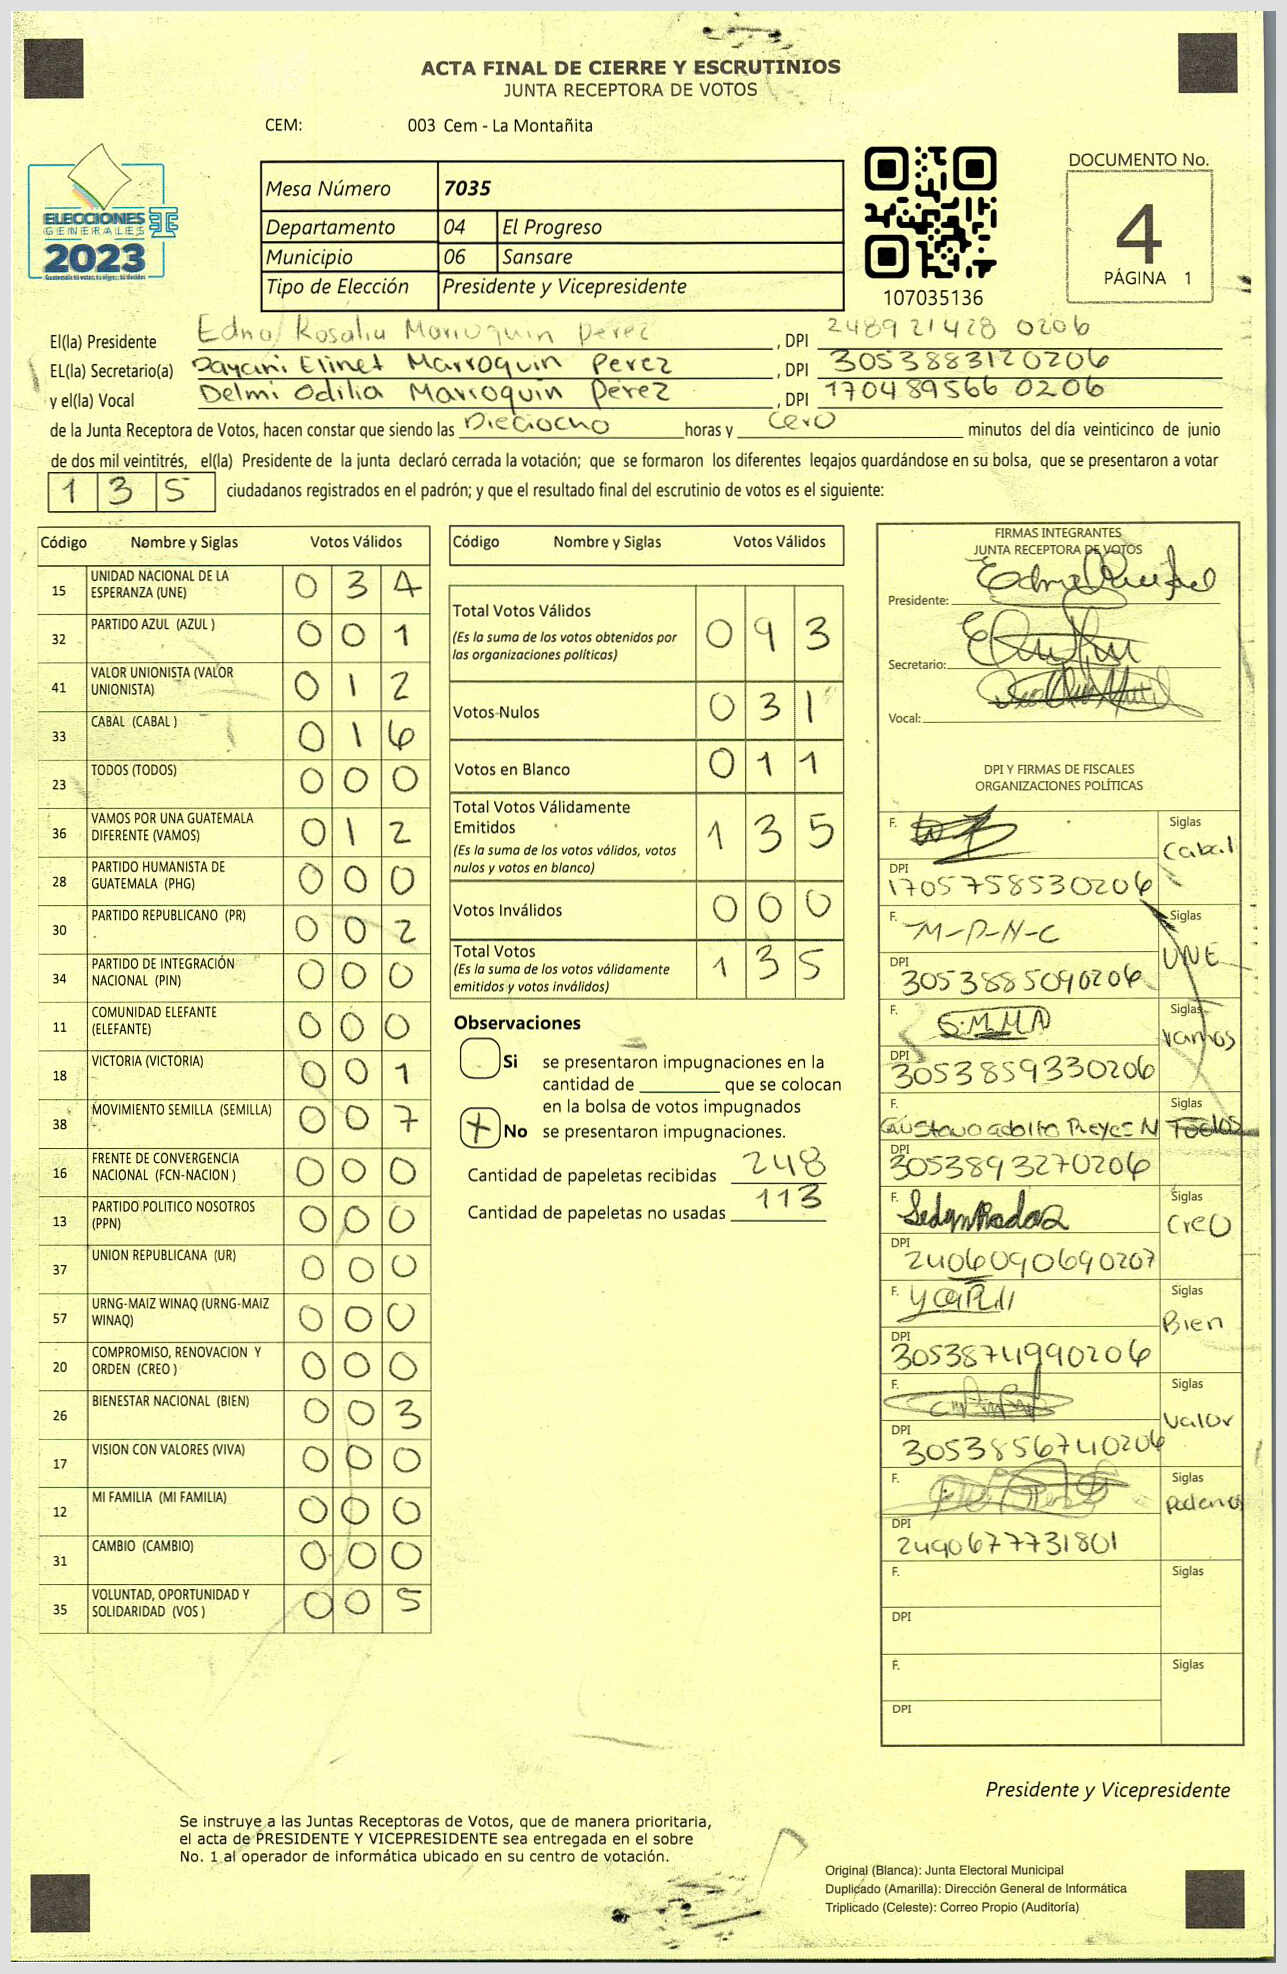 ACTA FINAL DE CIERRE Y ESCRUTINIOS
JUNTA RECEPTORA DE VOTOS
CEM: 003 Cem - La Montañita
ELECCIONES
GENERALES
2023
Mesa Número 7035
Departamento 04 El Progreso
Municipio 06 Sansare
Tipo de Elección Presidente y Vicepresidente
107035136
DOCUMENTO No.
4
PÁGINA 1
El(la) Presidente Edna Rosalia Marroquin perez, DPI 248921428 0206
EL(la) Secretario(a) Dayani Elinet Marroquin Perez, DPI 3053883120206
y el(la) Vocal Delmi Odilia Marroquin perez, DPI 170489566 0206
de la Junta Receptora de Votos, hacen constar que siendo las Dieciocho horas y cero minutos del día veinticinco de junio
de dos mil veintitrés, el(la) Presidente de la junta declaró cerrada la votación; que se formaron los diferentes legajos guardándose en su bolsa, que se presentaron a votar
135 ciudadanos registrados en el padrón; y que el resultado final del escrutinio de votos es el siguiente:
Código Nombre y Siglas Votos Válidos
15 UNIDAD NACIONAL DE LA ESPERANZA (UNE) 034
32 PARTIDO AZUL (AZUL ) 001
41 VALOR UNIONISTA (VALOR UNIONISTA) 012
33 CABAL (CABAL ) 016
23 TODOS (TODOS) 000
36 VAMOS POR UNA GUATEMALA DIFERENTE (VAMOS) 012
28 PARTIDO HUMANISTA DE GUATEMALA (PHG) 000
30 PARTIDO REPUBLICANO (PR) 002
34 PARTIDO DE INTEGRACIÓN NACIONAL (PIN) 000
11 COMUNIDAD ELEFANTE (ELEFANTE) 000
18 VICTORIA (VICTORIA) 001
38 MOVIMIENTO SEMILLA (SEMILLA) 007
16 FRENTE DE CONVERGENCIA NACIONAL (FCN-NACION ) 000
13 PARTIDO POLITICO NOSOTROS (PPN) 000
37 UNION REPUBLICANA (UR) 000
57 URNG-MAIZ WINAQ (URNG-MAIZ WINAQ) 000
20 COMPROMISO, RENOVACION Y ORDEN (CREO ) 000
26 BIENESTAR NACIONAL (BIEN) 003
17 VISION CON VALORES (VIVA) 000
12 MI FAMILIA (MI FAMILIA) 000
31 CAMBIO (CAMBIO) 000
35 VOLUNTAD, OPORTUNIDAD Y SOLIDARIDAD (VOS ) 005
Código Nombre y Siglas Votos Válidos
Total Votos Válidos 093
(Es la suma de los votos obtenidos por
las organizaciones políticas)
Votos Nulos 031
Votos en Blanco 011
Total Votos Válidamente
Emitidos 135
(Es la suma de los votos válidos, votos
nulos y votos en blanco)
Votos Inválidos 000
Total Votos 135
(Es la suma de los votos válidamente
emitidos y votos inválidos)
Observaciones
Si se presentaron impugnaciones en la
cantidad de ________ que se colocan
en la bolsa de votos impugnados
No se presentaron impugnaciones.
Cantidad de papeletas recibidas 248
Cantidad de papeletas no usadas 113
FIRMAS INTEGRANTES
JUNTA RECEPTORA DE VOTOS
Presidente:
Secretario:
Vocal:
DPI Y FIRMAS DE FISCALES
ORGANIZACIONES POLÍTICAS
F. Siglas Cabal
DPI 1705758530206
F. M-P-N-C Siglas UNE
DPI 3053885090206
F. S.M.M.A Siglas Vamos
DPI 3053859330206
F. Gustavo adolfo P Reyes N Siglas Todos
DPI 3053893270206
F. Siglas Creo
DPI 2406090690207
F. Siglas Bien
DPI 3053874990206
F. Siglas Valor
DPI 3053856740206
F. Siglas Podemos
DPI 2490677731801
F. Siglas
DPI
F. Siglas
DPI
Presidente y Vicepresidente
Se instruye a las Juntas Receptoras de Votos, que de manera prioritaria,
el acta de PRESIDENTE Y VICEPRESIDENTE sea entregada en el sobre
No. 1 al operador de informática ubicado en su centro de votación.
Original (Blanca): Junta Electoral Municipal
Duplicado (Amarilla): Dirección General de Informática
Triplicado (Celeste): Correo Propio (Auditoría)